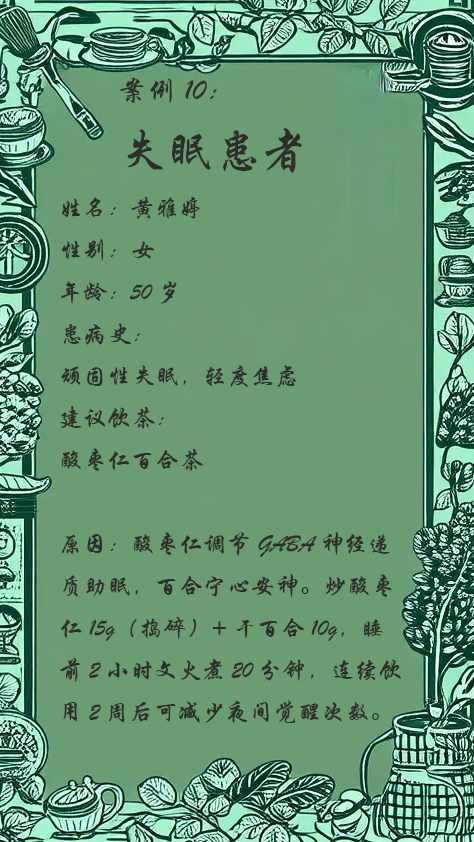 案例 10：
失眠患者
姓名：黄雅婷
性别：女
年龄：50 岁
患病史：
顽固性失眠，轻度焦虑
建议饮茶：
酸枣仁百合茶
原因：酸枣仁调节 GABA 神经递
质助眠，百合宁心安神。炒酸枣
仁 15g（捣碎）＋干百合 10g，睡
前 2 小时文火煮 20 分钟，连续饮
用 2 周后可减少夜间觉醒次数。